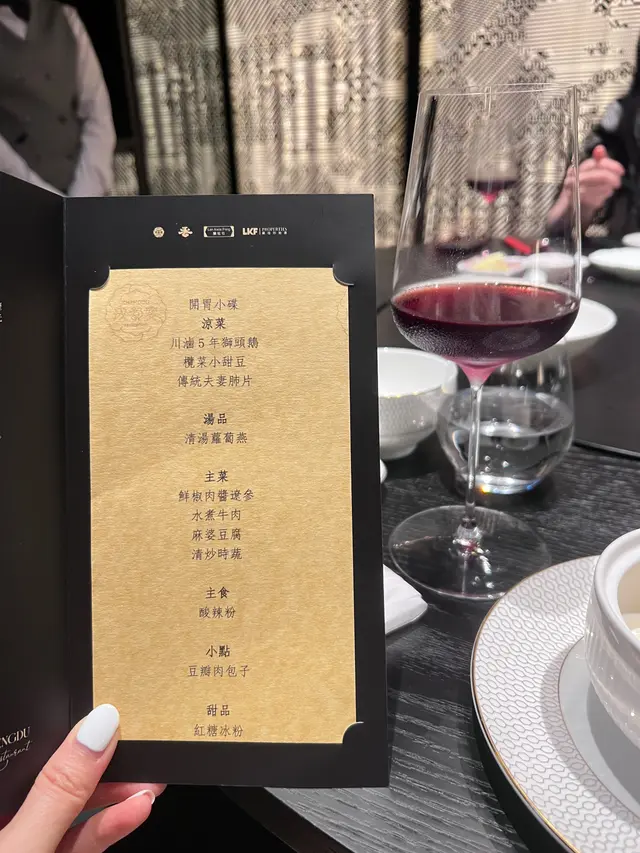 Lan Kwai Fong
蘭桂坊
LKF PROPERTIES
開胃小碟
涼菜
川滷5年獅頭鵝
欖菜小甜豆
傳統夫妻肺片
湯品
清湯蘿蔔燕
主菜
鮮椒肉醬遼參
水煮牛肉
麻婆豆腐
清炒時蔬
主食
酸辣粉
小點
豆瓣肉包子
甜品
紅糖冰粉
ENGDU